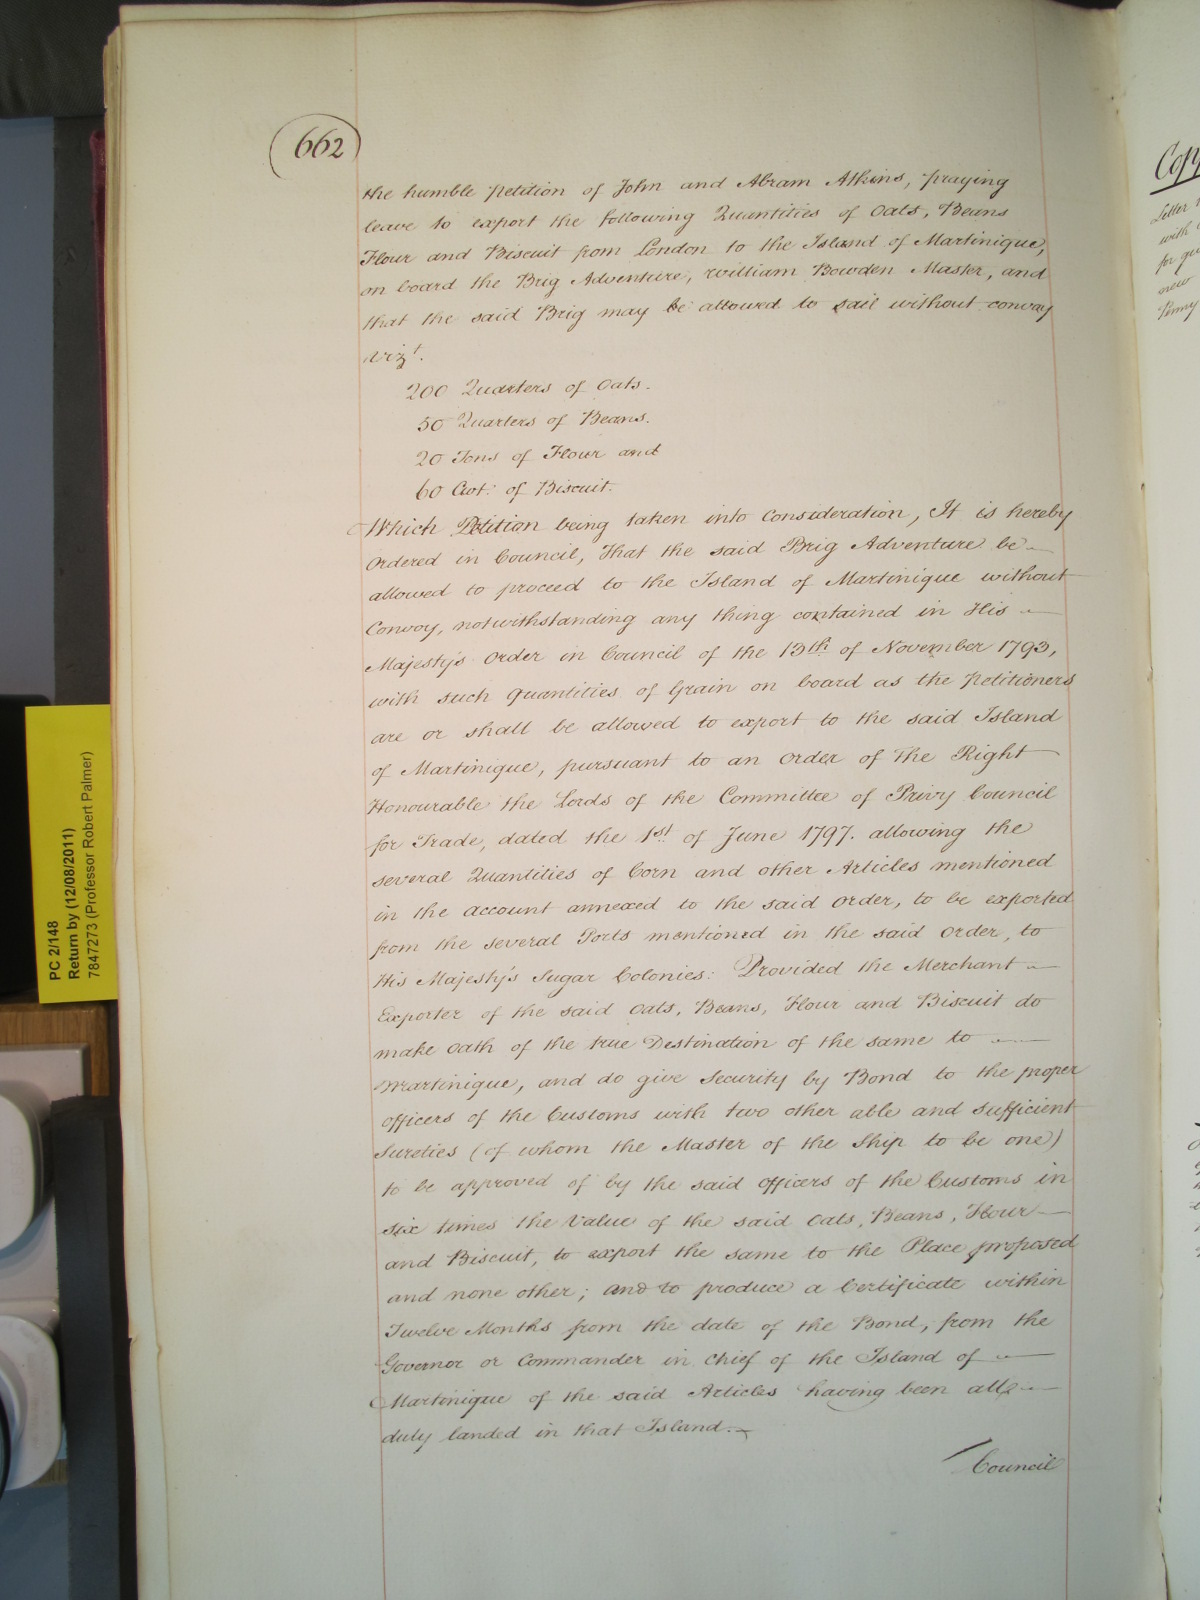 662
the humble Petition of John and Abram Atkins, praying
leave to export the following Quantities of Oats, Beans
Flour and Biscuit from London to the Island of Martinique,
on board the Brig Adventure, William Bowden Master, and
that the said Brig may be allowed to sail without convoy
vizt.
200 Quarters of Oats.
50 Quarters of Beans.
20 Tons of Flour and
60 Cwt: of Biscuit.
Which Petition being taken into Consideration, It is hereby
Ordered in Council, that the said Brig Adventure be
allowed to proceed to the Island of Martinique without
Convoy, notwithstanding any thing contained in His
Majesty's Order in Council of the 13th of November 1793,
with such Quantities of Grain on board as the Petitioners
are or shall be allowed to export to the said Island
of Martinique, pursuant to an Order of The Right
Honourable the Lords of the Committee of Privy Council
for Trade, dated the 1st of June 1797. allowing the
several Quantities of Corn and other Articles mentioned
in the account annexed to the said Order, to be exported
from the several Ports mentioned in the said Order, to
His Majesty's Sugar Colonies: Provided the Merchant
Exporter of the said Oats, Beans, Flour and Biscuit do
make Oath of the true Destination of the same to
Martinique, and do give Security by Bond to the proper
officers of the Customs with two other able and sufficient
Sureties (of whom the Master of the Ship to be one)
to be approved of by the said officers of the Customs in
six times the Value of the said Oats, Beans, Flour
and Biscuit, to export the same to the Place proposed
and none other; and to produce a Certificate within
Twelve Months from the date of the Bond, from the
Governor or Commander in Chief of the Island of
Martinique of the said Articles having been all
duly landed in that Island.
Council
PC 2/148
Return by (12/08/2011)
7847273 (Professor Robert Palmer)
Copy
Letter
with
for
new
Penny